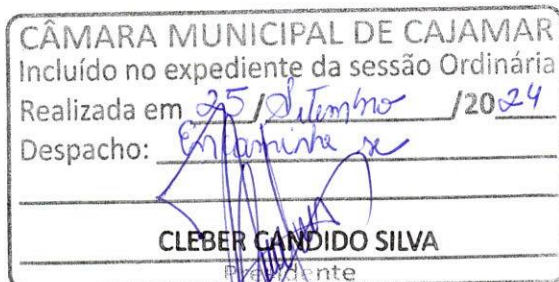 CÂMARA MUNICIPAL DE CAJAMAR
Incluído no expediente da sessão Ordinária
Realizada em 25 / Setembro /2024
Despacho: Encaminha se
CLEBER CANDIDO SILVA
Presidente